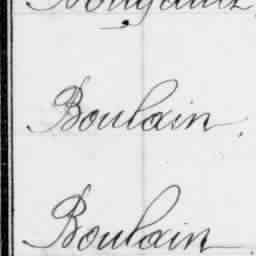 Boulain.
Boulain